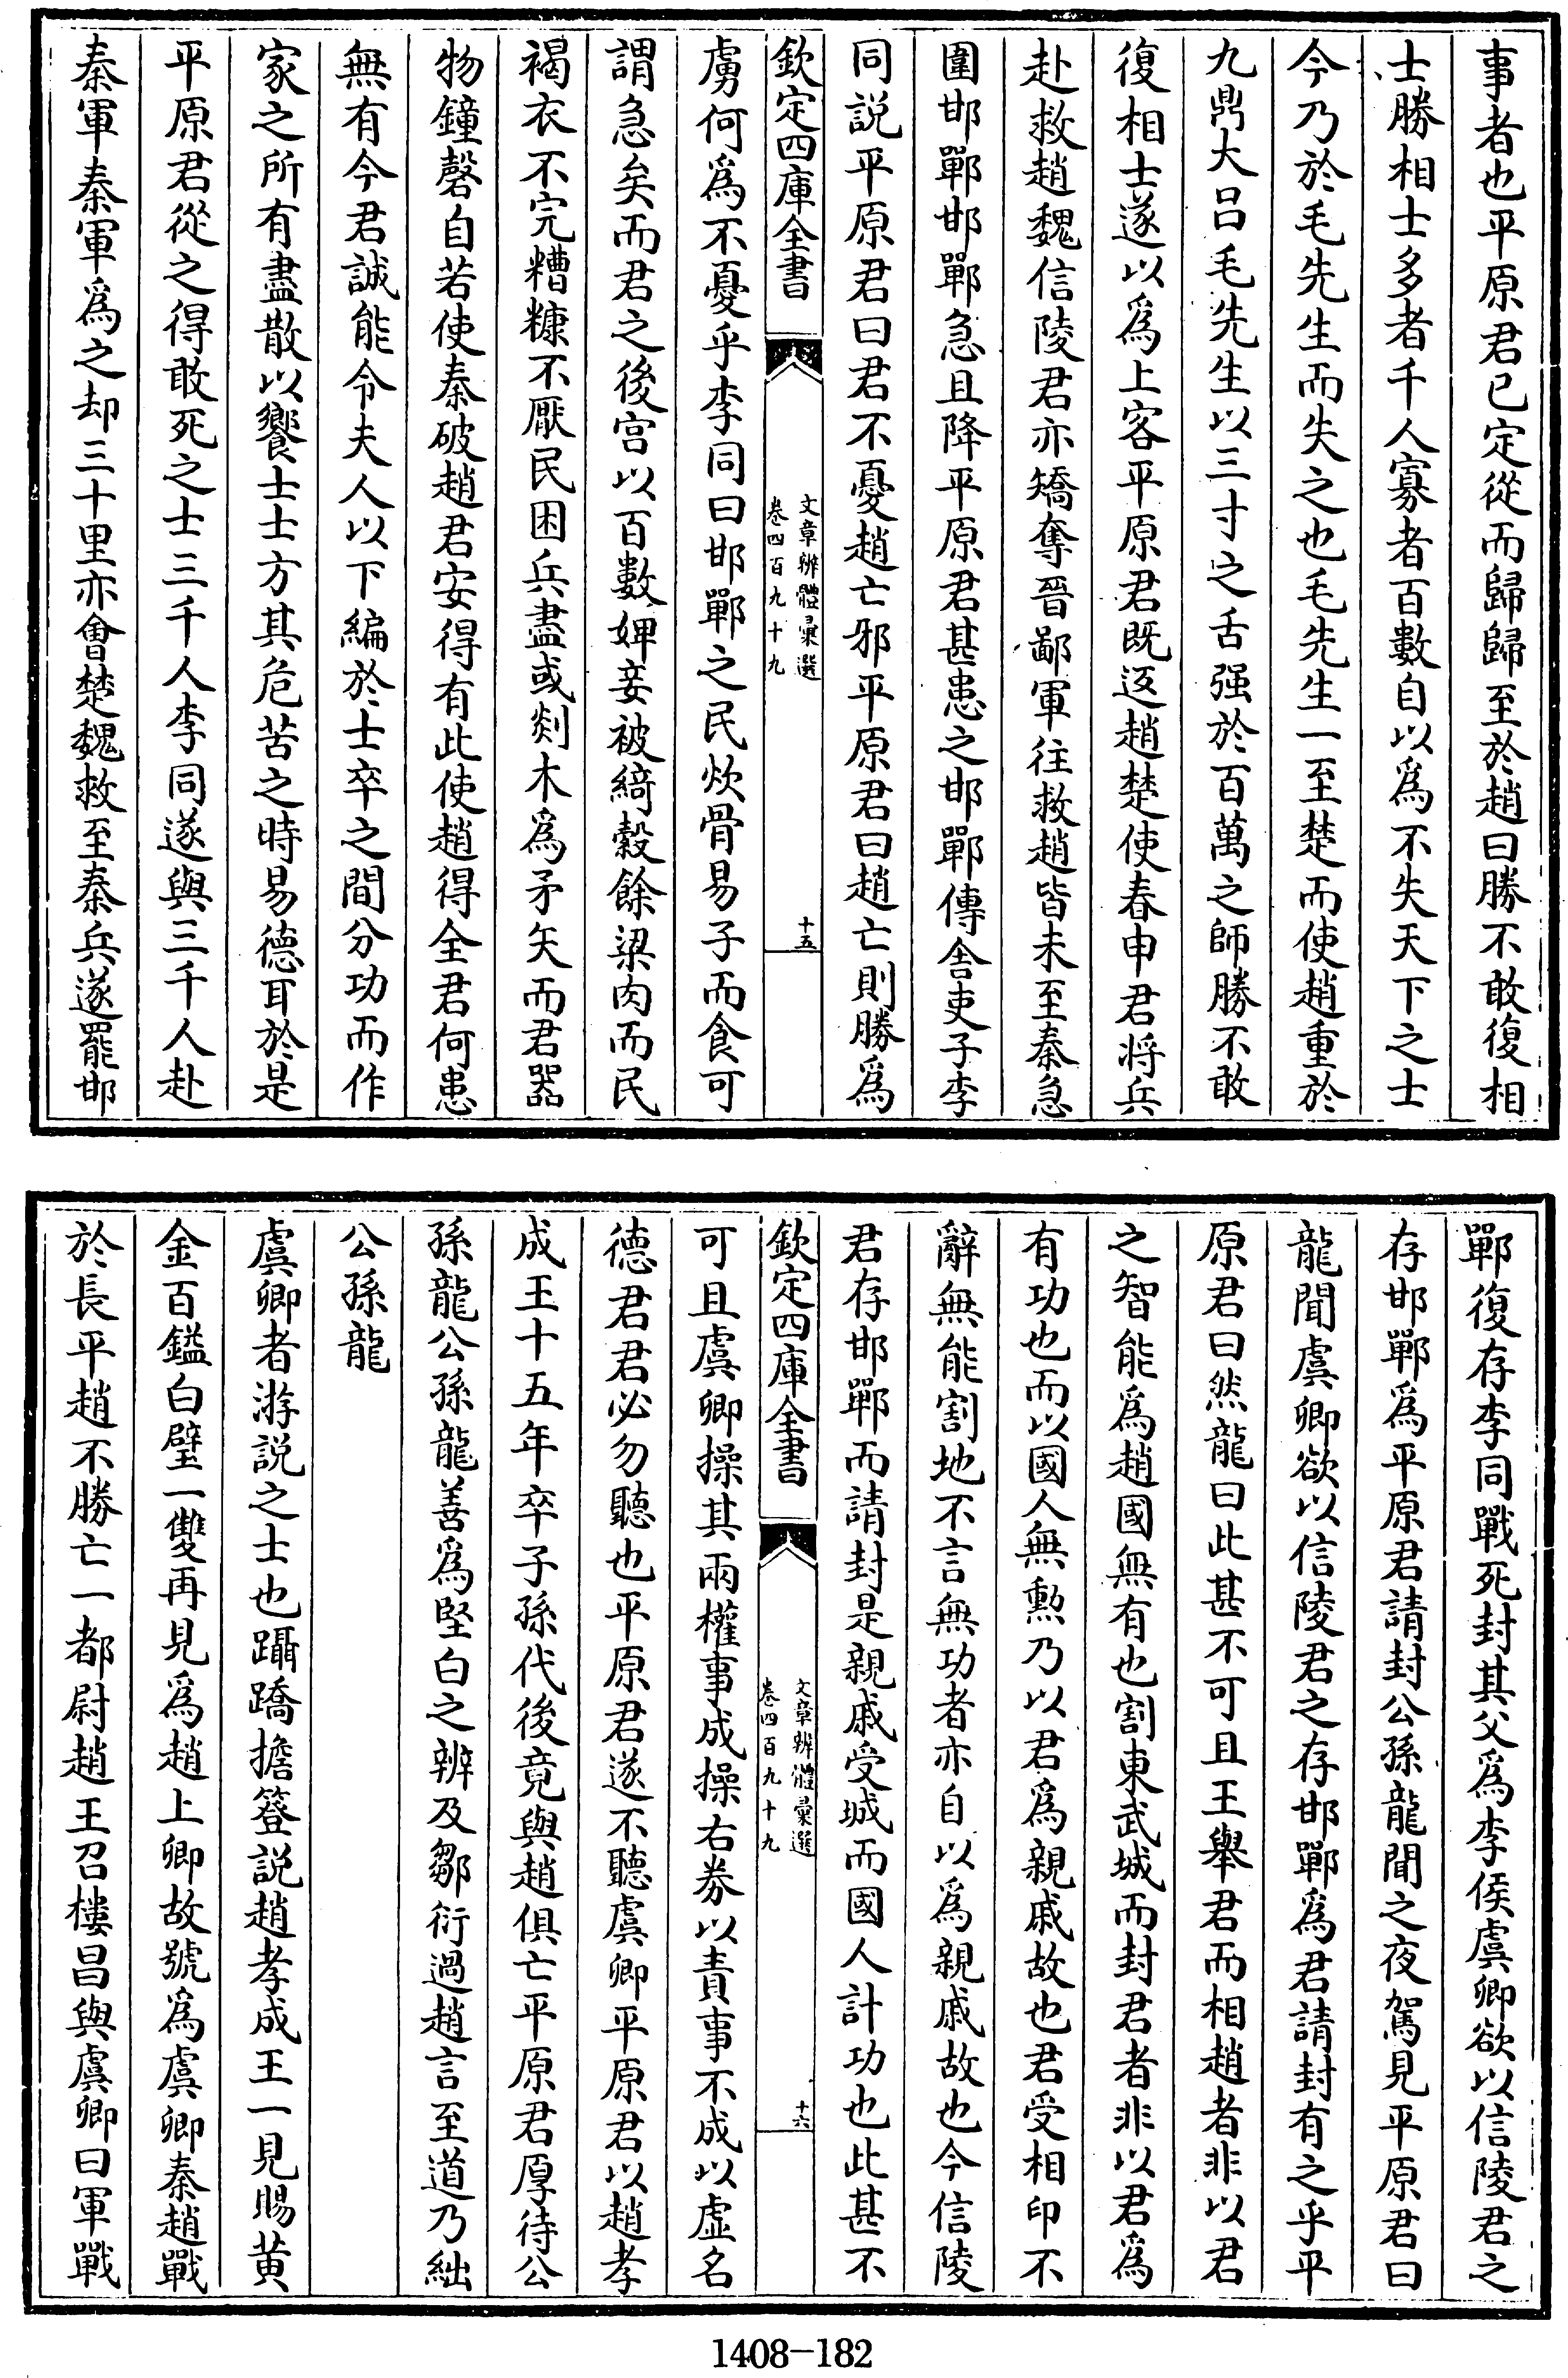 事者也平原君已定從而歸歸至於趙曰勝不敢復相
士勝相士多者千人寡者百數自以為不失天下之士
今乃於毛先生而失之也毛先生一至楚而使趙重於
九鼎大吕毛先生以三寸之舌强於百萬之師勝不敢
復相士遂以為上客平原君既返趙楚使春申君将兵
赴救趙魏信陵君亦矯奪晉鄙軍往救趙皆未至秦急
圍邯鄲邯鄲急且降平原君甚患之邯鄲傳舍吏子李
同説平原君曰君不憂趙亡邪平原君曰趙亡則勝為
欽定四庫全書
文章辨體彙選
卷四百九十九
十五
虜何為不憂乎李同曰邯鄲之民炊骨易子而食可
謂急矣而君之後宫以百數婢妾被綺縠餘粱肉而民
褐衣不完糟糠不厭民困兵盡或剡木為矛矢而君器
物鐘磬自若使秦破趙君安得有此使趙得全君何患
無有今君誠能令夫人以下編於士卒之間分功而作
家之所有盡散以饗士士方其危苦之時易德耳於是
平原君從之得敢死之士三千人李同遂與三千人赴
秦軍秦軍為之却三十里亦會楚魏救至秦兵遂罷邯
鄲復存李同戰死封其父為李侯虞卿欲以信陵君之
存邯鄲為平原君請封公孫龍聞之夜駕見平原君曰
龍聞虞卿欲以信陵君之存邯鄲為君請封有之乎平
原君曰然龍曰此甚不可且王舉君而相趙者非以君
之智能為趙國無有也割東武城而封君者非以君為
有功也而以國人無勲乃以君為親戚故也君受相印不
辭無能割地不言無功者亦自以為親戚故也今信陵
君存邯鄲而請封是親戚受城而國人計功也此甚不
欽定四庫全書
文章辨體彙選
卷四百九十九
十六
可且虞卿操其兩權事成操右券以責事不成以虚名
德君君必勿聽也平原君遂不聽虞卿平原君以趙孝
成王十五年卒子孫代後竟與趙俱亡平原君厚待公
孫龍公孫龍善為堅白之辨及鄒衍過趙言至道乃絀
公孫龍
虞卿者游説之士也躡蹻擔簦説趙孝成王一見賜黄
金百鎰白璧一雙再見為趙上卿故號為虞卿秦趙戰
於長平趙不勝亡一都尉趙王召樓昌與虞卿曰軍戰
1408-182